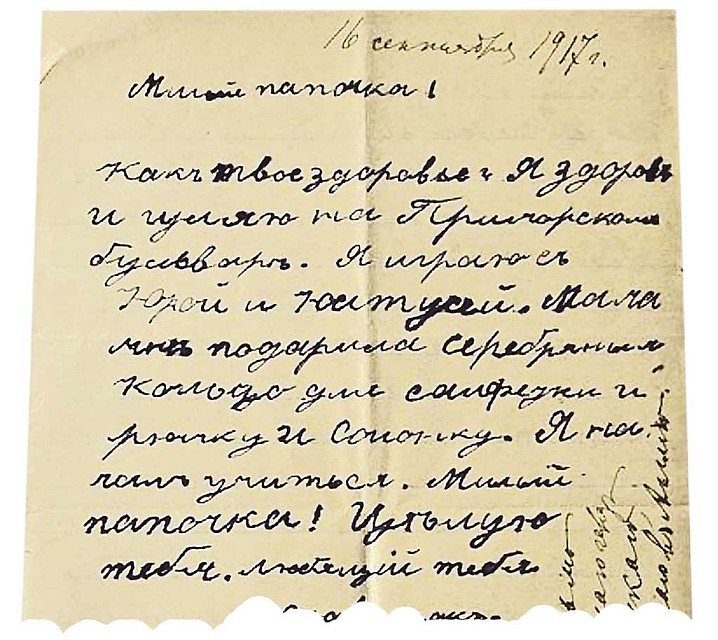 16 сентября 1917 г.
Милый папочка!
Какъ твое здоровье? Я здоровъ
и гуляю на Приморскомъ
бульварѣ. Я играю съ
Юрой и Катусей. Мама
мнѣ подарила серебряныя
кольцо для салфетки и
рюмку и солонку. Я на-
чалъ учиться. Милый
папочка! Цѣлую
тебя. любящій тебя